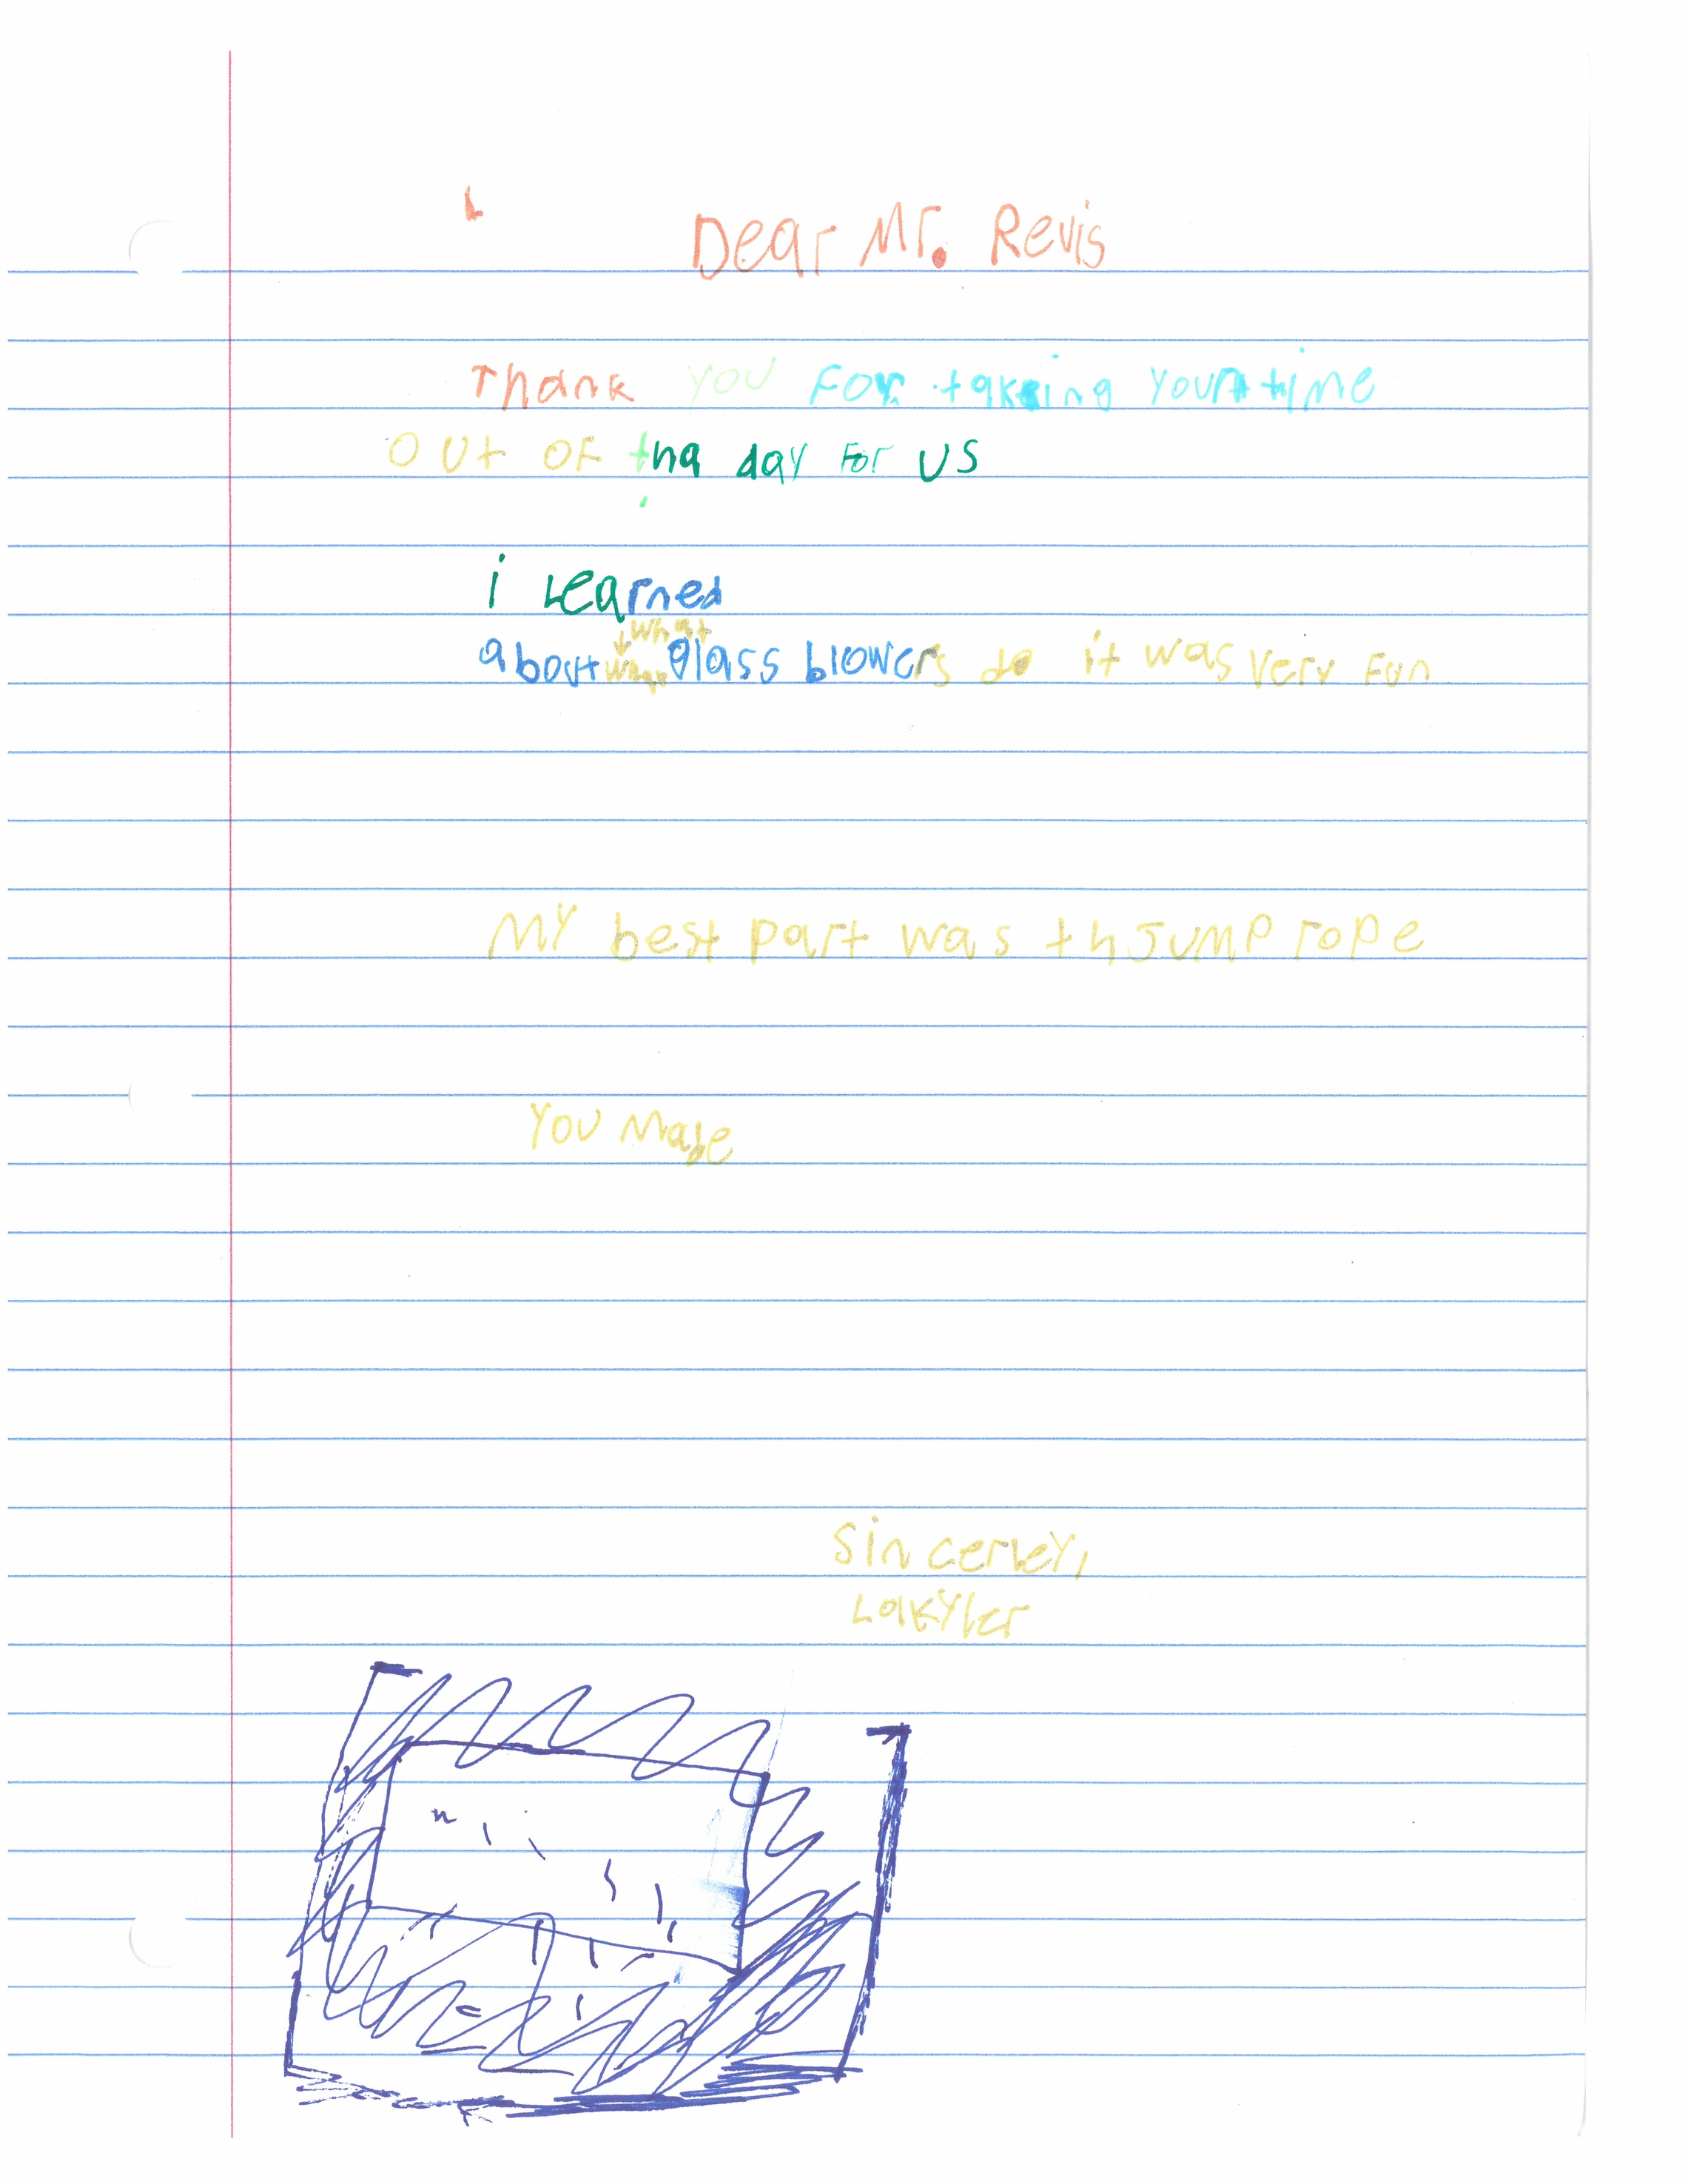 Dear Mr. Revis
Thank you for taking your time
out of tha day for us
i Learned
what
about glass blowers do it was very fun
My best part was th Jump rope
You Made
Sincerley,
Lakyler